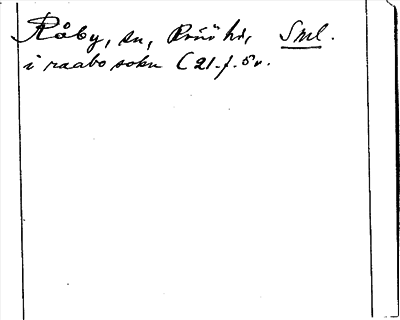 Råby, sn, Rönö hd, Sml.
i raabo sokn (21.7.5v.